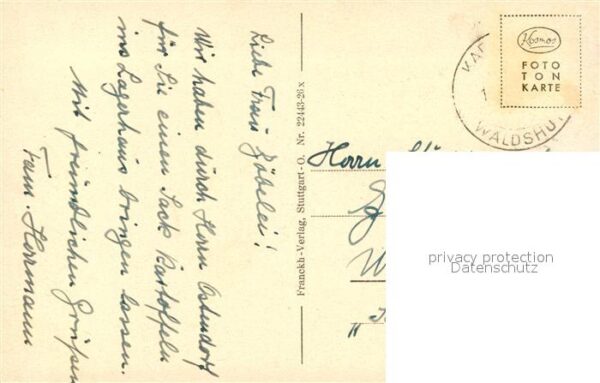 Liebe Frau Göbelei!
Wir haben durch Herrn Ostundorf
für Sie einen Sack Kartoffeln
ins Lagerhaus bringen lassen.
Mit freundlichen Grüßen
Fam. Herrmann
Franckh-Verlag, Stuttgart-O. Nr. 22443-26x
Kosmos
FOTO
TON
KARTE
WALDSHU
Herrn
privacy protection
Datenschutz